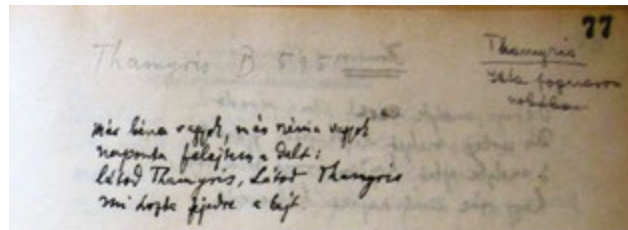 77
Thamyris
Thamyris B 595
már béna vagyok, más néma vagyok
naponta felejtem a dalt:
látod Thamyris, Látod Thamyris
mi hozta fejedre a bajt.